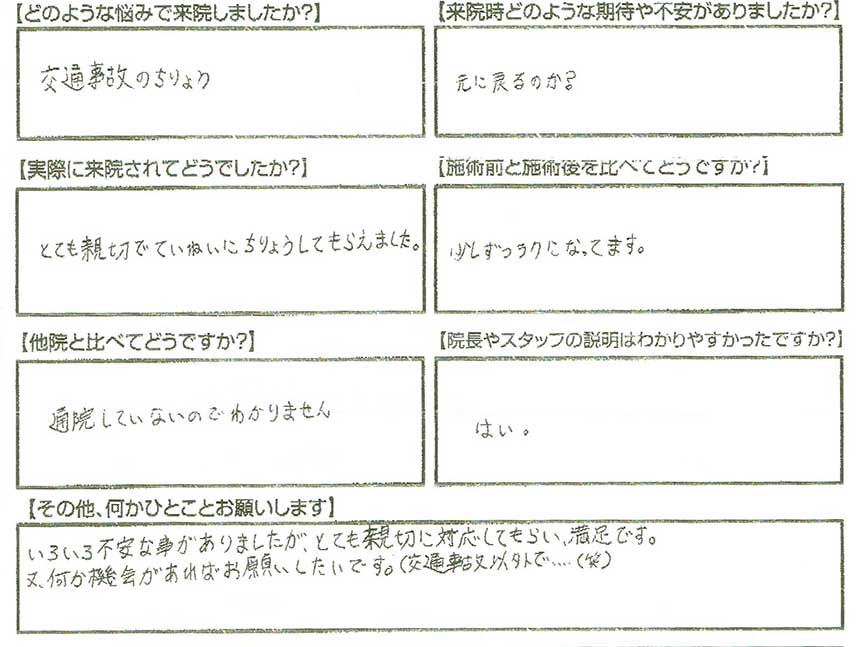 【どのような悩みで来院しましたか?】
交通事故のちりょう
【来院時どのような期待や不安がありましたか?】
元に戻るのか?
【実際に来院されてどうでしたか?】
とても親切でていねいにちりょうしてもらえました。
【施術前と施術後を比べてどうですか?】
少しずつラクになってます。
【他院と比べてどうですか?】
通院していないのでわかりません
【院長やスタッフの説明はわかりやすかったですか?】
はい。
【その他、何かひとことお願いします】
いろいろ不安な事がありましたが、とても親切に対応してもらい、満足です。
又、何か機会があればお願いしたいです。(交通事故以外で....(笑)